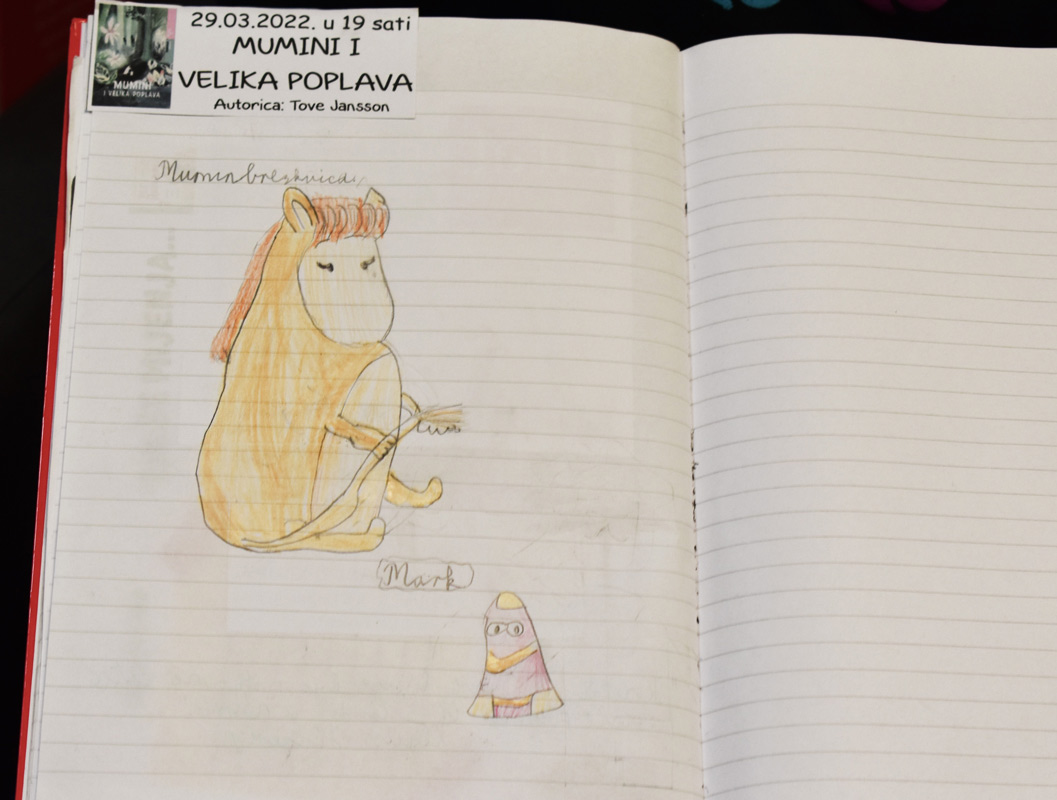 29.03.2022. u 19 sati
MUMINI I
VELIKA POPLAVA
Autorica: Tove Jansson
MUMINI
I VELIKA POPLAVA
Mark